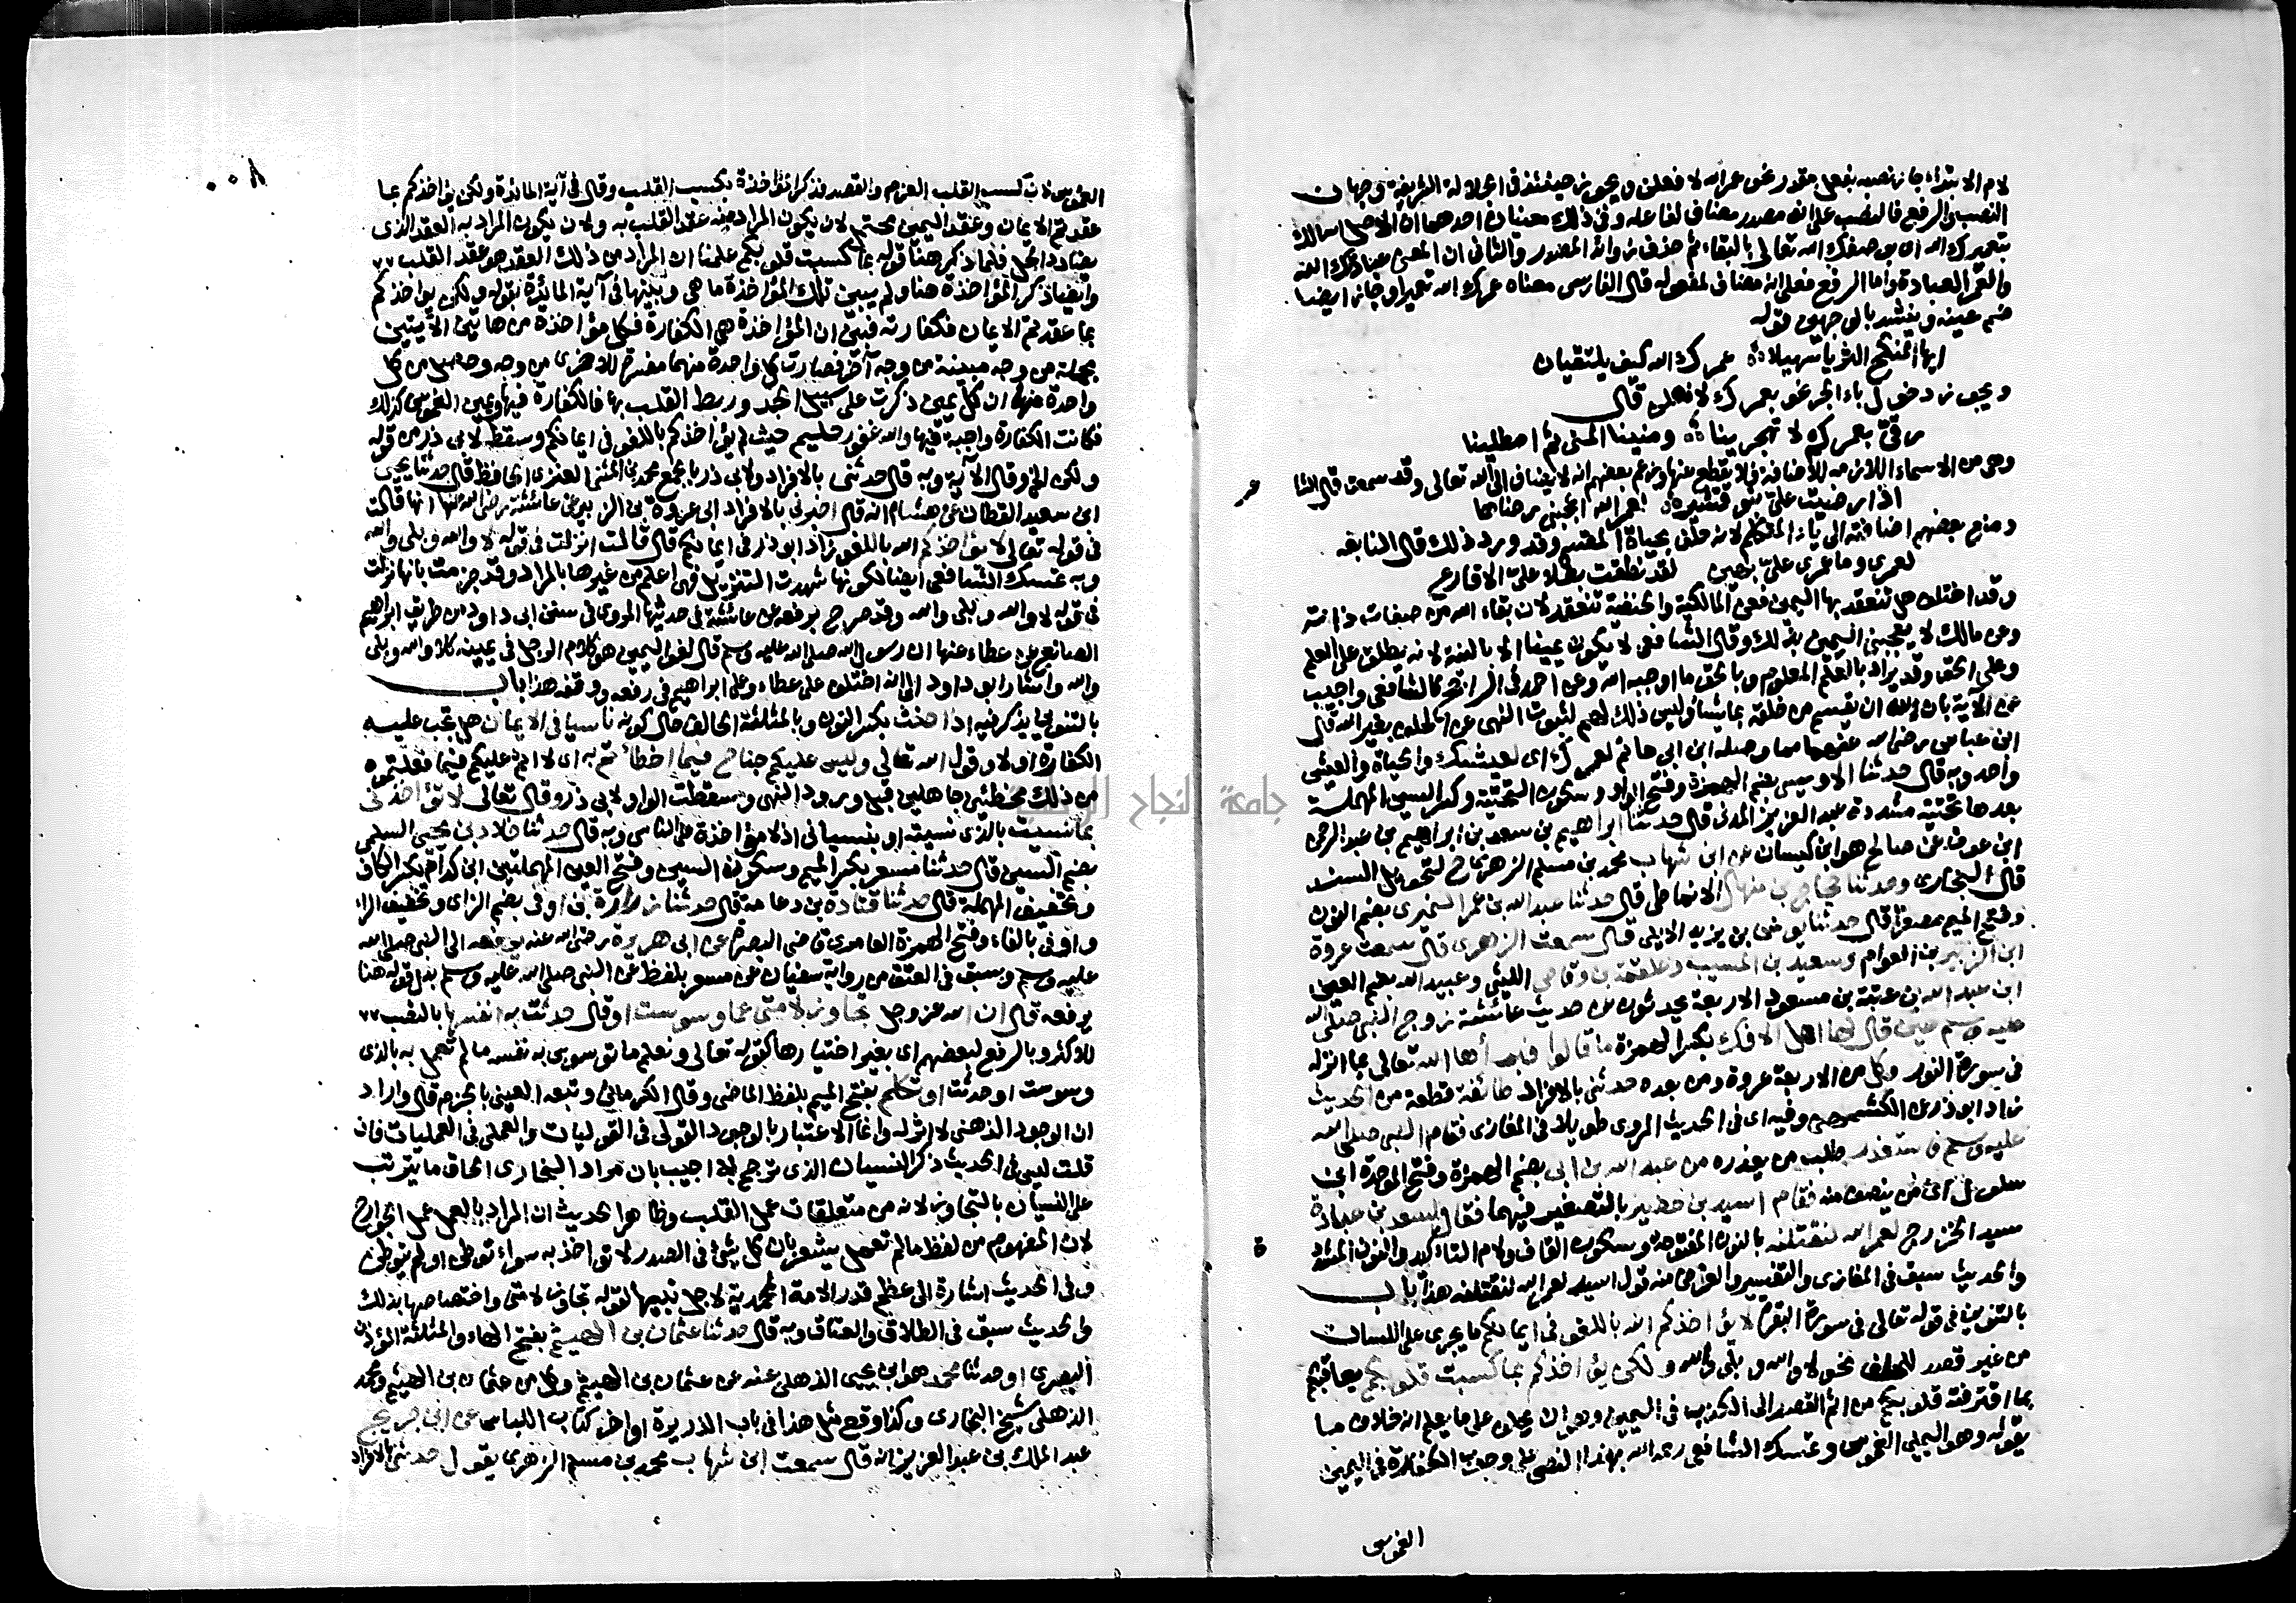 لام الابتداء جاز نصبه بفعل مقدر نحو عمر الله لا فعلن ويجوز حينئذ في الجلالة الشريفة وجهان
النصب والرفع فالنصب على انه مصدر مضاف لفاعله وفي ذلك معنيان احدهما ان الاصل اسالك
بتعميرك الله اي بوصفك الله تعالى بالبقاء ثم حذف زوائد المصدر والثاني ان المعنى عبادتك الله
والعمر العبادة واما الرفع فعلى انه مضاف لمفعوله قال الفارسي معناه عمرك الله تعميرا وجاز ايضا
ضم عينه وينشد بالوجهين قوله
ايها المنكح الثريا سهيلا عمرك الله كيف يلتقيان
ويجوز دخول باء الجر نحو بعمرك لا فعلن قال
رقي بعمركم لا تهجرينا ومنينا المنى ثم امطلينا
وهي من الاسماء اللازمة للاضافة فلا يقطع عنها وزعم بعضهم انه لا يضاف الى الله تعالى وقد سمعت قال الشا
عر
اذا رضيت علي بنو قشير لعمر الله اعجبني رضاها
ومنع بعضهم اضافته الى ياء المتكلم لانه حلف بحياة المقسم وقد ورد ذلك قال النابغه
لعمري وما عمري علي بهين لقد نطقت بطلا علي الاقارع
وقد اختلف هل تنعقد بها اليمين فعن المالكية والحنفية تنعقد لان بقاء الله من صفات ذاته
وعن مالك لا يعجبني اليمين بذلك وقال الشافعي لا يكون يمينا الا بالنية لانه يطلق على العلم
وعلى الحق وقد يراد بالعلم المعلوم وبالحق ما اوجبه الله وعن احمد في الراجح كالشافعي واجيب
عن الاية بان لله ان يقسم من خلقه بما شاء وليس ذلك لهم لثبوت النهي عن الحلف بغير الله قال
ابن عباس رضي الله عنهما مما وصله ابن ابي حاتم لعمرك اي لعيشك والحياة والعيش
واحد وبه قال حدثنا الاويسي بضم الهمزة وفتح الواو وسكون التحتية وكسر السين المهملة
بعدها تحتية مشددة عبد العزيز المدني قال حدثنا ابراهيم بن سعد بن ابراهيم بن عبد الرحمن
ابن عوف عن صالح هو ابن كيسان عن ابن شهاب محمد بن مسلم الزهري ح لتحويل السند
قال البخاري وحدثنا حجاج بن منهال الانماطي قال حدثنا عبد الله بن عمر النميري بضم النون
وفتح الميم مصغرا قال حدثنا يونس بن يزيد الايلي قال سمعت الزهري قال سمعت عروة
ابن الزبير بن العوام وسعيد بن المسيب وعلقمة بن وقاص الليثي وعبيد الله بضم العين
ابن عبد الله بن عتبة بن مسعود الاربعة يحدثون عن حديث عائشة زوج النبي صلى الله
عليه وسلم حين قال لها اهل الافك بكسر الهمزة ما قالوا فبرأها الله تعالى بما انزله
في سورة النور وكل من الاربعة عروة ومن بعده حدثني بالافراد طائفة قطعة من الحديث
زاد ابو ذر عن الكشميهني وفيه اي في الحديث المروي طويلا في المغازي فقام النبي صلى الله
عليه وسلم فاستعذر طلب من يعذره من عبد الله بن ابي بضم الهمزة وفتح الموحدة ابن
سلول اي من ينصف منه فقام اسيد بن حضير بالتصغير فيهما فقال لسعد بن عبادة
سيد الخزرج لعمر الله لنقتلنه بالنون المفتوحة وسكون القاف ولام التاكيد والنون المشدد
ة
والحديث سبق في المغازي والتفسير والغرض منه قول اسيد لعمر الله لنقتلنه هذا باب
بالتنوين في قوله تعالى في سورة البقرة لا يؤاخذكم الله باللغو في ايمانكم ما يجري على اللسان
من غير قصد للحلف نحو لا والله وبلى والله ولكن يؤاخذكم بما كسبت قلوبكم يعاقبكم
بما اقترفته قلوبكم من اثم القصد الى الكذب في اليمين وهو ان يحلف على ما يعلم انه خلاف ما
يقوله وهو اليمين الغموس وتمسك الشافعي رحمه الله بهذا النص على وجوب الكفارة في اليمين
الغموس
الغموس لان كسب القلب العزم والقصد فذكر المؤاخذة بكسب القلب وقال في آية المائدة ولكن يؤاخذكم بما
عقدتم الايمان وعقد اليمين محتمل لان يكون المراد منه عقد القلب به ولان يكون المراد به العقد الذي
يضاد الحل فلما ذكر هنا قوله بما كسبت قلوبكم علمنا ان المراد من ذلك العقد هو عقد القلب
وايضا ذكر المؤاخذة هنا ولم يبين تلك المؤاخذة ما هي وبينها في آية المائدة بقوله ولكن يؤاخذكم
بما عقدتم الايمان فكفارته فبين ان المؤاخذة هي الكفارة فكل مؤاخذة من هاتين الآيتين
مجملة من وجه مبينة من وجه آخر فصارت كل واحدة منهما مفسرة للاخرى من وجه وحصل من كل
واحدة منهما ان كل يمين ذكرت على سبيل الجد وربط القلب بها فالكفارة فيها ويمين الغموس كذلك
فكانت الكفارة واجبة فيها والله غفور حليم حيث لم يؤاخذكم باللغو في ايمانكم وسقط لابي ذر من قوله
ولكن الخ وقال الآية وبه قال حدثني بالافراد ولابي ذر بالجمع محمد بن المثنى العنزي الحافظ قال حدثنا يحيى
ابن سعيد القطان عن هشام انه قال اخبرني بالافراد ابي عروة بن الزبير عن عائشة رضي الله عنها انها قالت
في قوله تعالى لا يؤاخذكم الله باللغو زاد ابو ذر في ايمانكم قال قالت انزلت في قوله لا والله وبلى والله
وبه تمسك الشافعي ايضا لكونها شهدت التنزيل فهي اعلم من غيرها بالمراد وقد جزمت بانها نزلت
في قوله لا والله وبلى والله وقد صرح برفعه عن عائشة في حديثها المروي في سنن ابي داود من طريق ابراهيم
الصائغ عن عطاء عنها ان رسول الله صلى الله عليه وسلم قال لغو اليمين هو كلام الرجل في يمينه كلا والله وبلى
والله واشار ابو داود الى انه اختلف على عطاء وعلى ابراهيم في رفعه ووقفه هذا باب
بالتنوين يذكر فيه اذا حنث بكسر النون وبالمثلثة الحالف حال كونه ناسيا في الايمان هل تجب عليه
الكفارة او لا وقول الله تعالى وليس عليكم جناح فيما اخطأتم به اي لا اثم عليكم فيما فعلتموه
من ذلك مخطئين جاهلين قبل ورود النهي وسقطت الواو لابي ذر وقال تعالى لا تؤاخذني
بما نسيت بالذي نسيته او بنسياني اذ لا مؤاخذة على الناسي وبه قال حدثنا خلاد بن يحيى السلمي
بضم السين قال حدثنا مسعر بكسر الميم وسكون السين وفتح العين المهملتين ابن كدام بكسر الكاف
وتخفيف المهملة قال حدثنا قتادة بن دعامة قال حدثنا زرارة بن اوفى بضم الزاي وتخفيف الراء
واوفى بالفاء وفتح الهمزة العامري قاضي البصرة عن ابي هريرة رضي الله عنه يرفعه الى النبي صلى الله
عليه وسلم وسبق في العتق من رواية سفيان عن مسعر بلفظ عن النبي صلى الله عليه وسلم بدل قوله هنا
يرفعه قال ان الله عز وجل تجاوز لامتي عما وسوست او قال حدثت به انفسها بالنصب
للاكثر وبالرفع لبعضهم اي بغير اختيارها كقوله تعالى ونعلم ما توسوس به نفسه ما لم تعمل به بالذي
وسوست او حدثت او تكلم بفتح الميم بلفظ الماضي وقال الكرماني وتبعه العيني بالجزم قال واراد
ان الوجود الذهني لا اثر له وانما الاعتبار بالوجود القولي في القوليات والعملي في العمليات فان
قلت ليس في الحديث ذكر النسيان الذي ترجم به اجيب بان مراد البخاري الحاق ما يترتب
على النسيان بالتجاوز لانه من متعلقات عمل القلب وظاهر الحديث ان المراد بالعمل عمل الجوارح
لان المفهوم من لفظ ما لم تعمل يشعر بان كل شيء في الصدر لا تؤاخذ به سواء توطن او لم يتوطن
وفي الحديث اشارة الى عظم قدر الامة المحمدية لاجل نبيها لقوله تجاوز لامتي واختصاصها بذلك
والحديث سبق في الطلاق والعتاق وبه قال حدثنا عثمان بن الهيثم بفتح الهاء والمثلثة المؤذن
البصري او حدثنا محمد هو ابن يحيى الذهلي عنه عن عثمان بن الهيثم وكل من عثمان بن الهيثم ومحمد
الذهلي شيخ البخاري وكذا وقع مثل هذا في باب الذريرة اواخر كتاب اللباس عن ابن جريج
عبد الملك بن عبد العزيز انه قال سمعت ابن شهاب محمد بن مسلم الزهري يقول حدثني بالافراد
جامعة النجاح الوطنية